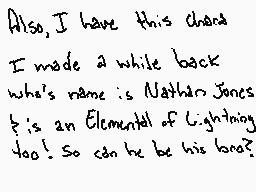 Also, I have this chara
I made a while back
who's name is Nathan Jones
& is an Elemental of Lightning
too! So can he be his bro?